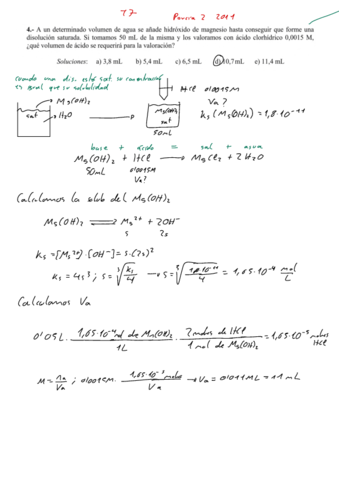 T7 Parcia 2 2011
4.- A un determinado volumen de agua se añade hidróxido de magnesio hasta conseguir que forme una
disolución saturada. Si tomamos 50 mL de la misma y los valoramos con ácido clorhídrico 0,0015 M,
¿qué volumen de ácido se requerirá para la valoración?
Soluciones: a) 3,8 mL b) 5,4 mL c) 6,5 mL d) 10,7 mL e) 11,4 mL
cuando una dis. está sat. su concentración
es igual que su solubilidad
HCl 0'0015M
Va?
Mg(OH)₂
H₂O
sat
Mg(OH)₂
sat
50mL
Ks (Mg(OH)₂) = 1,8·10⁻¹¹
base + ácido = sal + agua
Mg(OH)₂ + HCl → MgCl₂ + 2H₂O
50mL 0'0015M
Va?
Calculamos la solub del Mg(OH)₂
Mg(OH)₂ ⇌ Mg²⁺ + 2OH⁻
s 2s
Ks = [Mg²⁺]·[OH⁻] = s·(2s)²
Ks = 4s³ ; s = ∛(Ks/4) → s = ∛(1,8·10⁻¹¹/4) = 1,65·10⁻⁴ mol/L
Calculamos Va
0'05L · 1,65·10⁻⁴ mol de Mg(OH)₂/1L · 2 moles de HCl/1 mol de Mg(OH)₂ = 1,65·10⁻⁵ moles HCl
M = na/Va ; 0'0015M · 1,65·10⁻⁵ moles/Va → Va = 0'011 L = 11 mL